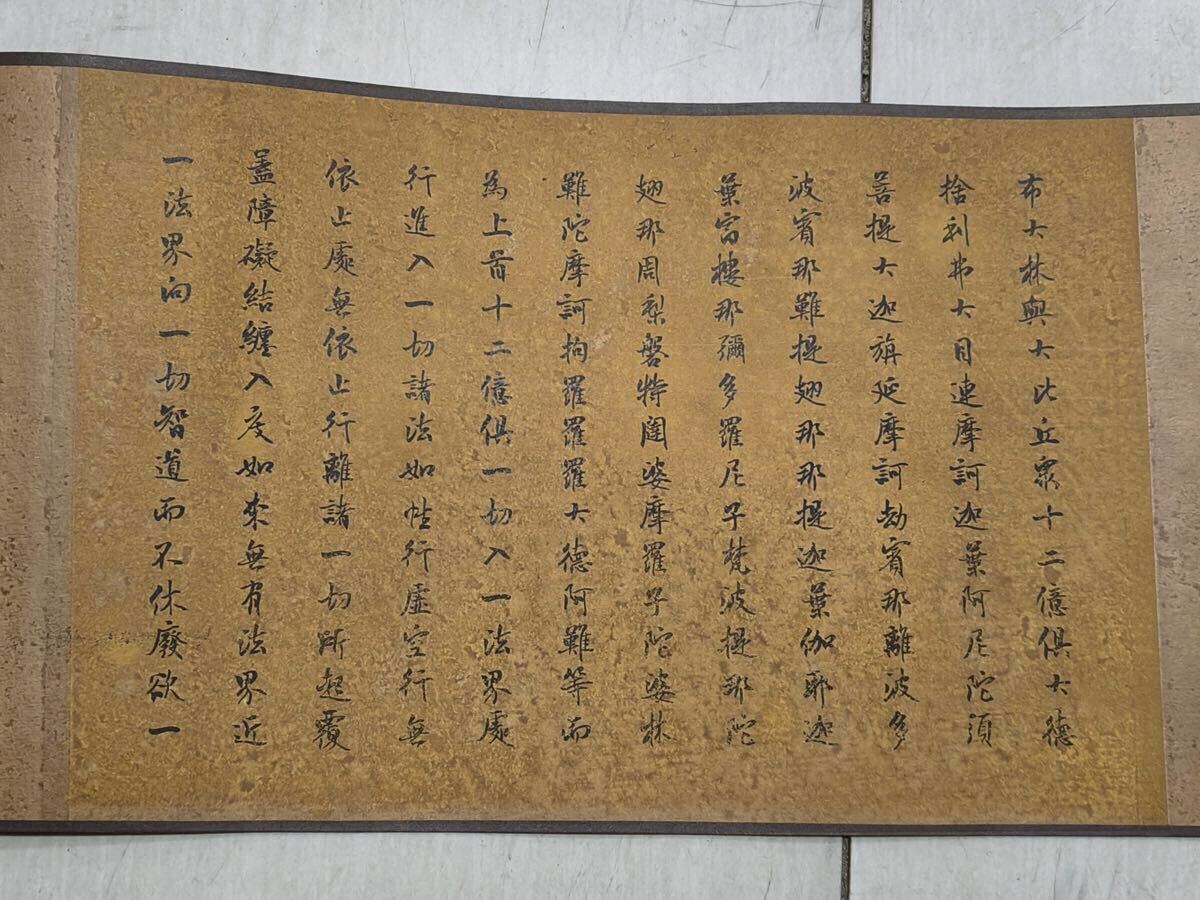 布大林與大比丘眾十二億俱大德
捨利弗大目連摩訶迦葉阿尼陀須
菩提大迦旃延摩訶劫賓那離波多
波賓那難提翅那那提迦葉伽耶迦
葉富樓那彌多羅尼子梵波提那陀
翅那周梨磐特闥婆摩羅子陀婆林
難陀摩訶拘羅羅羅大德阿難等而
為上首十二億俱一切入一法界處
行進入一切諸法如性行虛空行無
依止處無依止行離諸一切所起覆
蓋障礙結纏入度如來無有法界近
一法界向一切智道而不休廢欲一